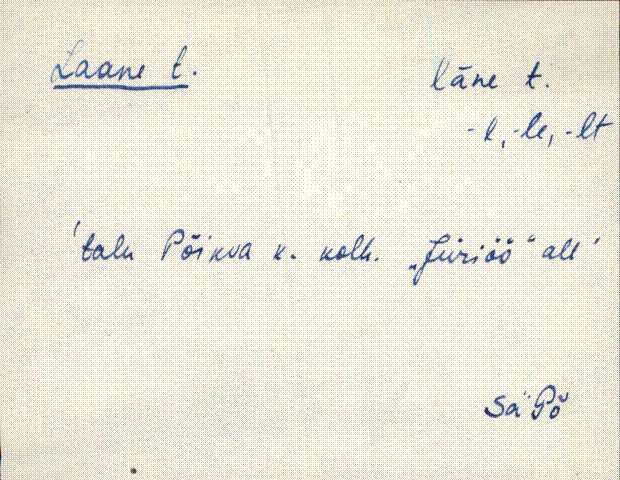 Laane t.
lāne t.
-l, -le, -lt
'talu Põikva k. kolh. „Jüriöö" all'
Sa Põ